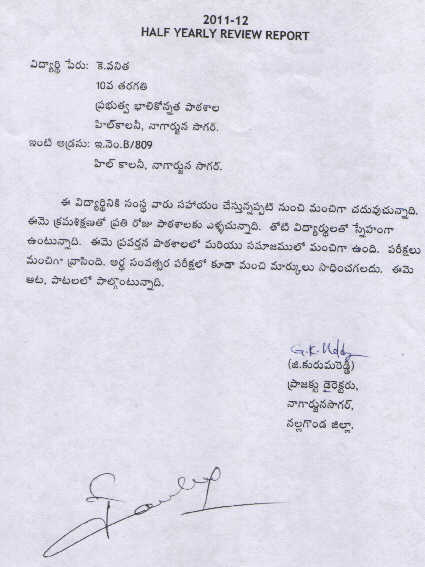 2011-12
HALF YEARLY REVIEW REPORT
విద్యార్థి పేరు: కె.వనిత
10వ తరగతి
ప్రభుత్వ భాలికోన్నత పాఠశాల
హిల్‌కాలనీ, నాగార్జున సాగర్.
ఇంటి అడ్రసు: ఇ.నెం.B/809
హిల్ కాలనీ, నాగార్జున సాగర్.
ఈ విద్యార్థినికి సంస్థ వారు సహాయం చేస్తున్నప్పటి నుంచి మంచిగా చదువుచున్నాది.
ఈమె క్రమశిక్షణతో ప్రతి రోజు పాఠశాలకు ఎళ్ళచున్నాది. తోటి విద్యార్థులతో స్నేహంగా
ఉంటున్నాది. ఈమె ప్రవర్తన పాఠశాలలో మరియు సమాజములో మంచిగా ఉంది. పరీక్షలు
మంచిగా వ్రాసింది. అర్ధ సంవత్సర పరీక్షలో కూడా మంచి మార్కులు సాధించగలదు. ఈమె
ఆట, పాటలలో పాల్గొంటున్నాది.
G.K. Reddy
(జి.కురుమరెడ్డి)
ప్రాజక్టు డైరెక్టరు,
నాగార్జునసాగర్,
నల్లగొండ జిల్లా.